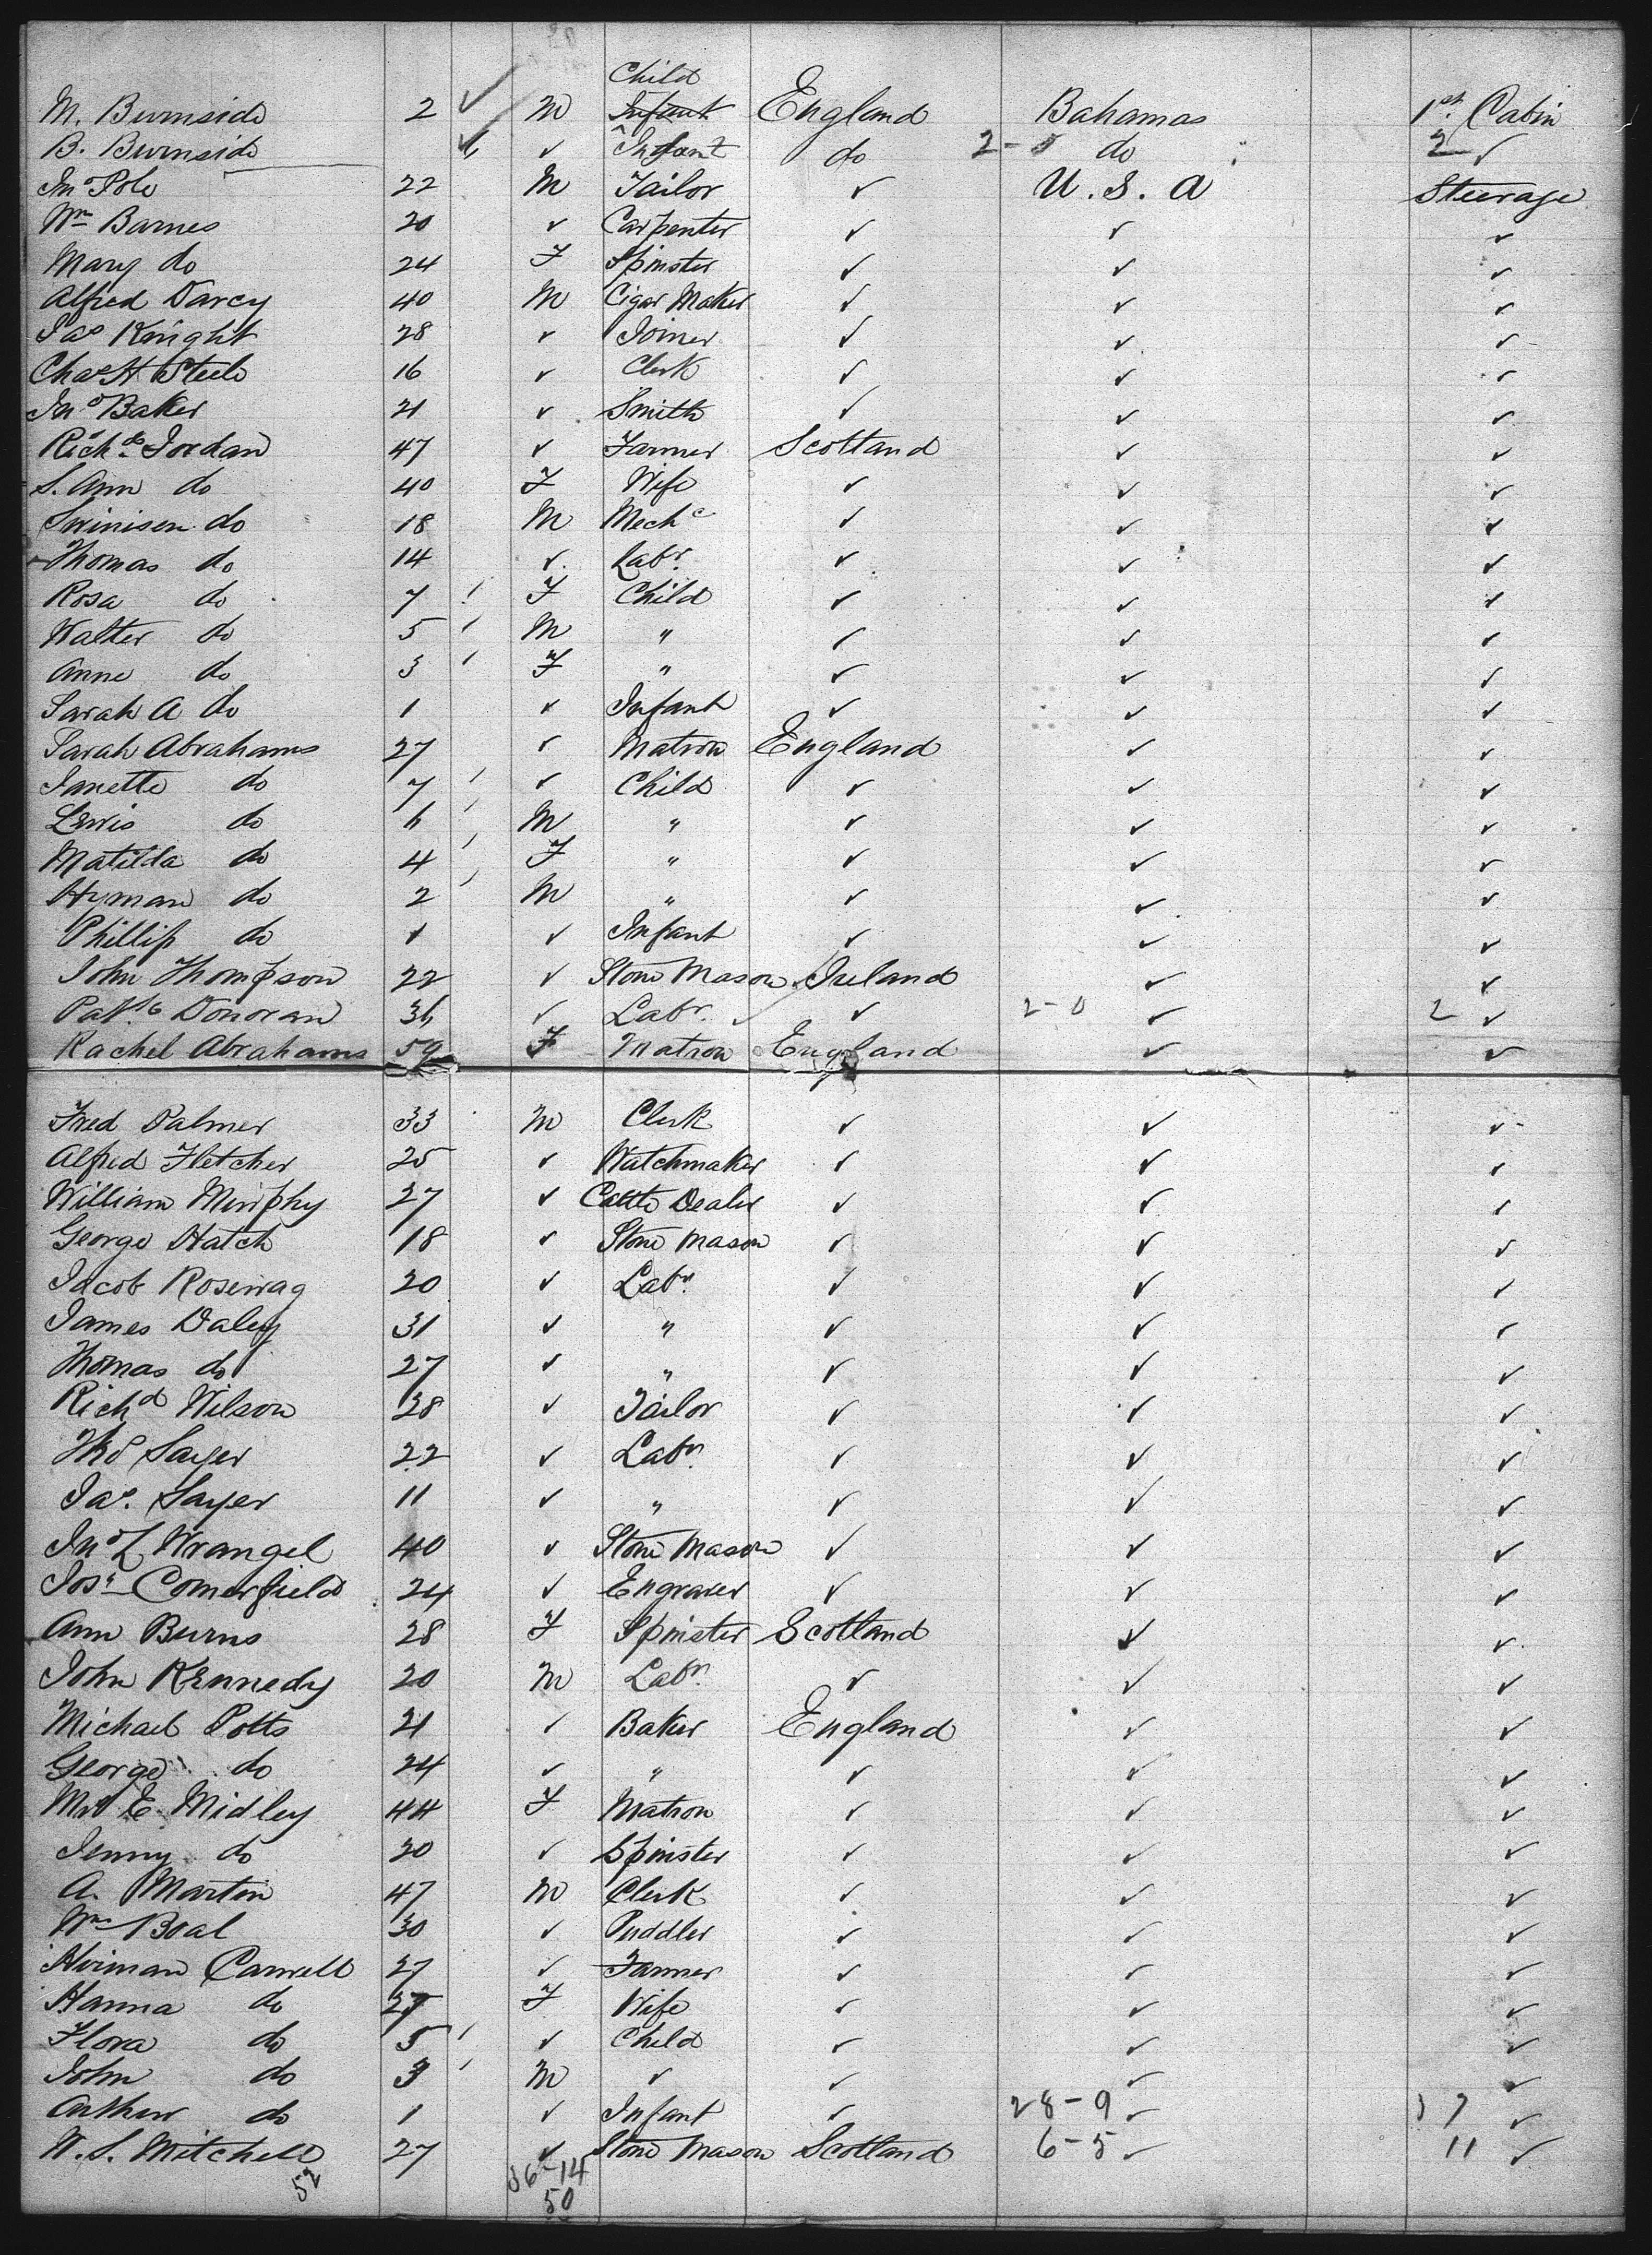 Child
M. Burnside 2 ✓ M Infant England Bahamas 1st. Cabin
B. Burnside ✓ ✓ Infant do 2-0 do 2 ✓
Jno Pole 22 M Tailor ✓ U. S. A Steerage
Wm Barnes 20 ✓ Carpenter ✓ ✓ ✓
Mary do 24 F Spinster ✓ ✓ ✓
Alfred Darcy 40 M Cigar Maker ✓ ✓ ✓
Jas Knight 28 ✓ Joiner ✓ ✓ ✓
Chas H Steele 16 ✓ Clerk ✓ ✓ ✓
Jno Baker 21 ✓ Smith ✓ ✓ ✓
Richd Jordan 47 ✓ Farmer Scotland ✓ ✓
S. Ann do 40 F Wife ✓ ✓ ✓
do 18 M Mechc ✓ ✓ ✓
Thomas do 14 ✓ Labr. ✓ ✓ ✓
Rosa do 7 F Child ✓ ✓ ✓
Walter do 5 M " ✓ ✓ ✓
Anne do 3 F " ✓ ✓ ✓
Sarah A do 1 ✓ Infant ✓ ✓ ✓
Sarah Abrahams 27 ✓ Matron England ✓ ✓
Janette do 7 ✓ Child ✓ ✓ ✓
Lewis do 6 M " ✓ ✓ ✓
Matilda do 4 F " ✓ ✓ ✓
Hyman do 2 M " ✓ ✓ ✓
Phillip do 1 ✓ Infant ✓ ✓ ✓
John Thompson 22 ✓ Stone Mason Ireland ✓ ✓
Patk Donovan 36 ✓ Labr. ✓ 2-0 ✓ 2 ✓
Rachel Abrahams 59 F Matron England ✓ ✓
Fred Palmer 33 M Clerk ✓ ✓ ✓
Alfred Fletcher 25 ✓ Watchmaker ✓ ✓ ✓
William Murphy 27 ✓ Cattle Dealer ✓ ✓ ✓
George Hatch 18 ✓ Stone Mason ✓ ✓ ✓
Jacob Rosewag 20 ✓ Labr. ✓ ✓ ✓
James Daley 31 ✓ " ✓ ✓ ✓
Thomas do 27 ✓ " ✓ ✓ ✓
Richd Wilson 28 ✓ Tailor ✓ ✓ ✓
Thos Sayer 22 ✓ Labr. ✓ ✓ ✓
Jas. Sayer 11 ✓ " ✓ ✓ ✓
Jno L Wrangel 40 ✓ Stone Mason ✓ ✓ ✓
Josh Comerfield 24 ✓ Engraver ✓ ✓ ✓
Ann Burns 28 F Spinster Scotland ✓ ✓
John Kennedy 20 M Labr. ✓ ✓ ✓
Michael Potts 21 ✓ Baker England ✓ ✓
George do 24 ✓ " ✓ ✓ ✓
Mrs E. Midley 44 F Matron ✓ ✓ ✓
Jenny do 20 ✓ Spinster ✓ ✓ ✓
A. Martin 47 M Clerk ✓ ✓ ✓
Wm Boal 30 ✓ Puddler ✓ ✓ ✓
Hirman Carwell 27 ✓ Farmer ✓ ✓ ✓
Hanna do 27 F Wife ✓ ✓ ✓
Flora do 5 ✓ Child ✓ ✓ ✓
John do 3 M ✓ ✓ ✓ ✓
Arthur do 1 ✓ Infant ✓ 28-9 ✓ 37 ✓
W. S. Mitchell 27 ✓ Stone Mason Scotland 6-5 ✓ 11 ✓
52 36-14
50